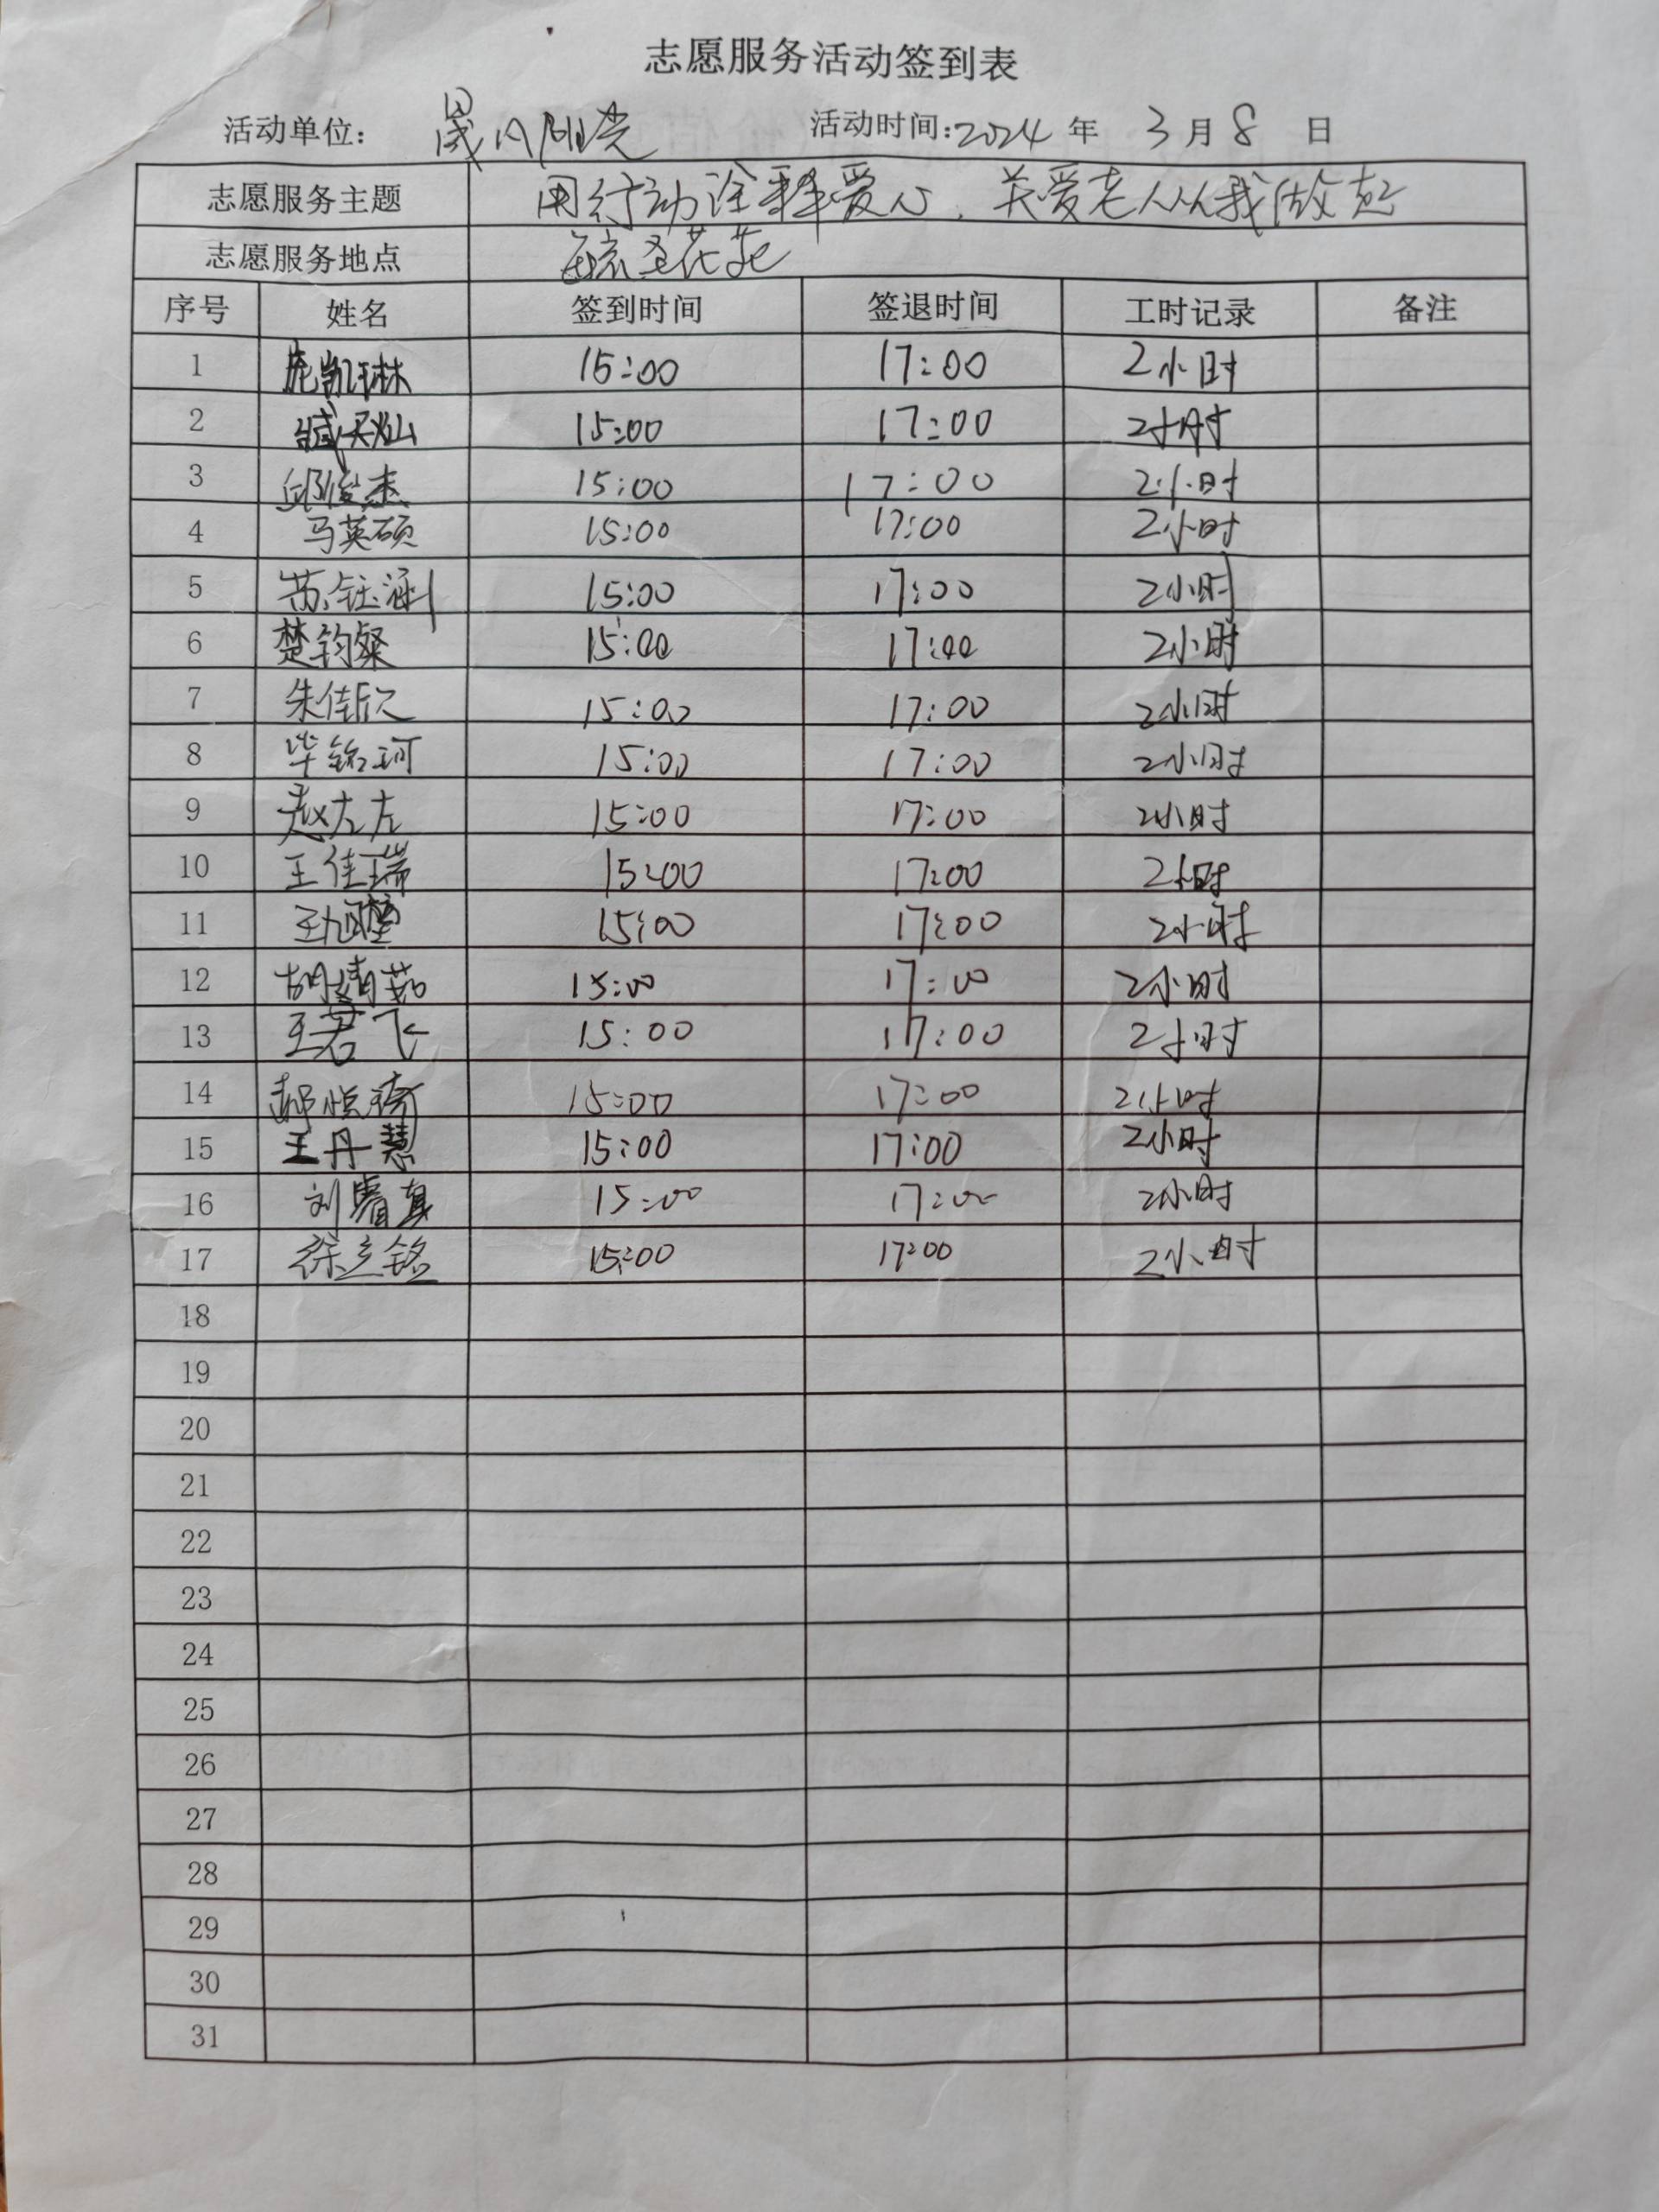 志愿服务活动签到表
活动单位: 阳光 活动时间:2024 年 3 月 8 日
志愿服务主题 用行动诠释爱心、关爱老人从我做起
志愿服务地点 花苑
序号 姓名 签到时间 签退时间 工时记录 备注
1 庞凯琳 15:00 17:00 2小时
2 臧天灿 15:00 17:00 2小时
3 邱俊杰 15:00 17:00 2小时
4 马英硕 15:00 17:00 2小时
5 苏钰涵 15:00 17:00 2小时
6 楚钧粲 15:00 17:00 2小时
7 朱佳欣 15:00 17:00 2小时
8 毕铭珂 15:00 17:00 2小时
9 赵左左 15:00 17:00 2小时
10 王佳瑞 15:00 17:00 2小时
11 15:00 17:00 2小时
12 胡清茹 15:00 17:00 2小时
13 王若飞 15:00 17:00 2小时
14 郝悦 15:00 17:00 2小时
15 王丹慧 15:00 17:00 2小时
16 刘睿真 15:00 17:00 2小时
17 徐立铭 15:00 17:00 2小时
18
19
20
21
22
23
24
25
26
27
28
29
30
31